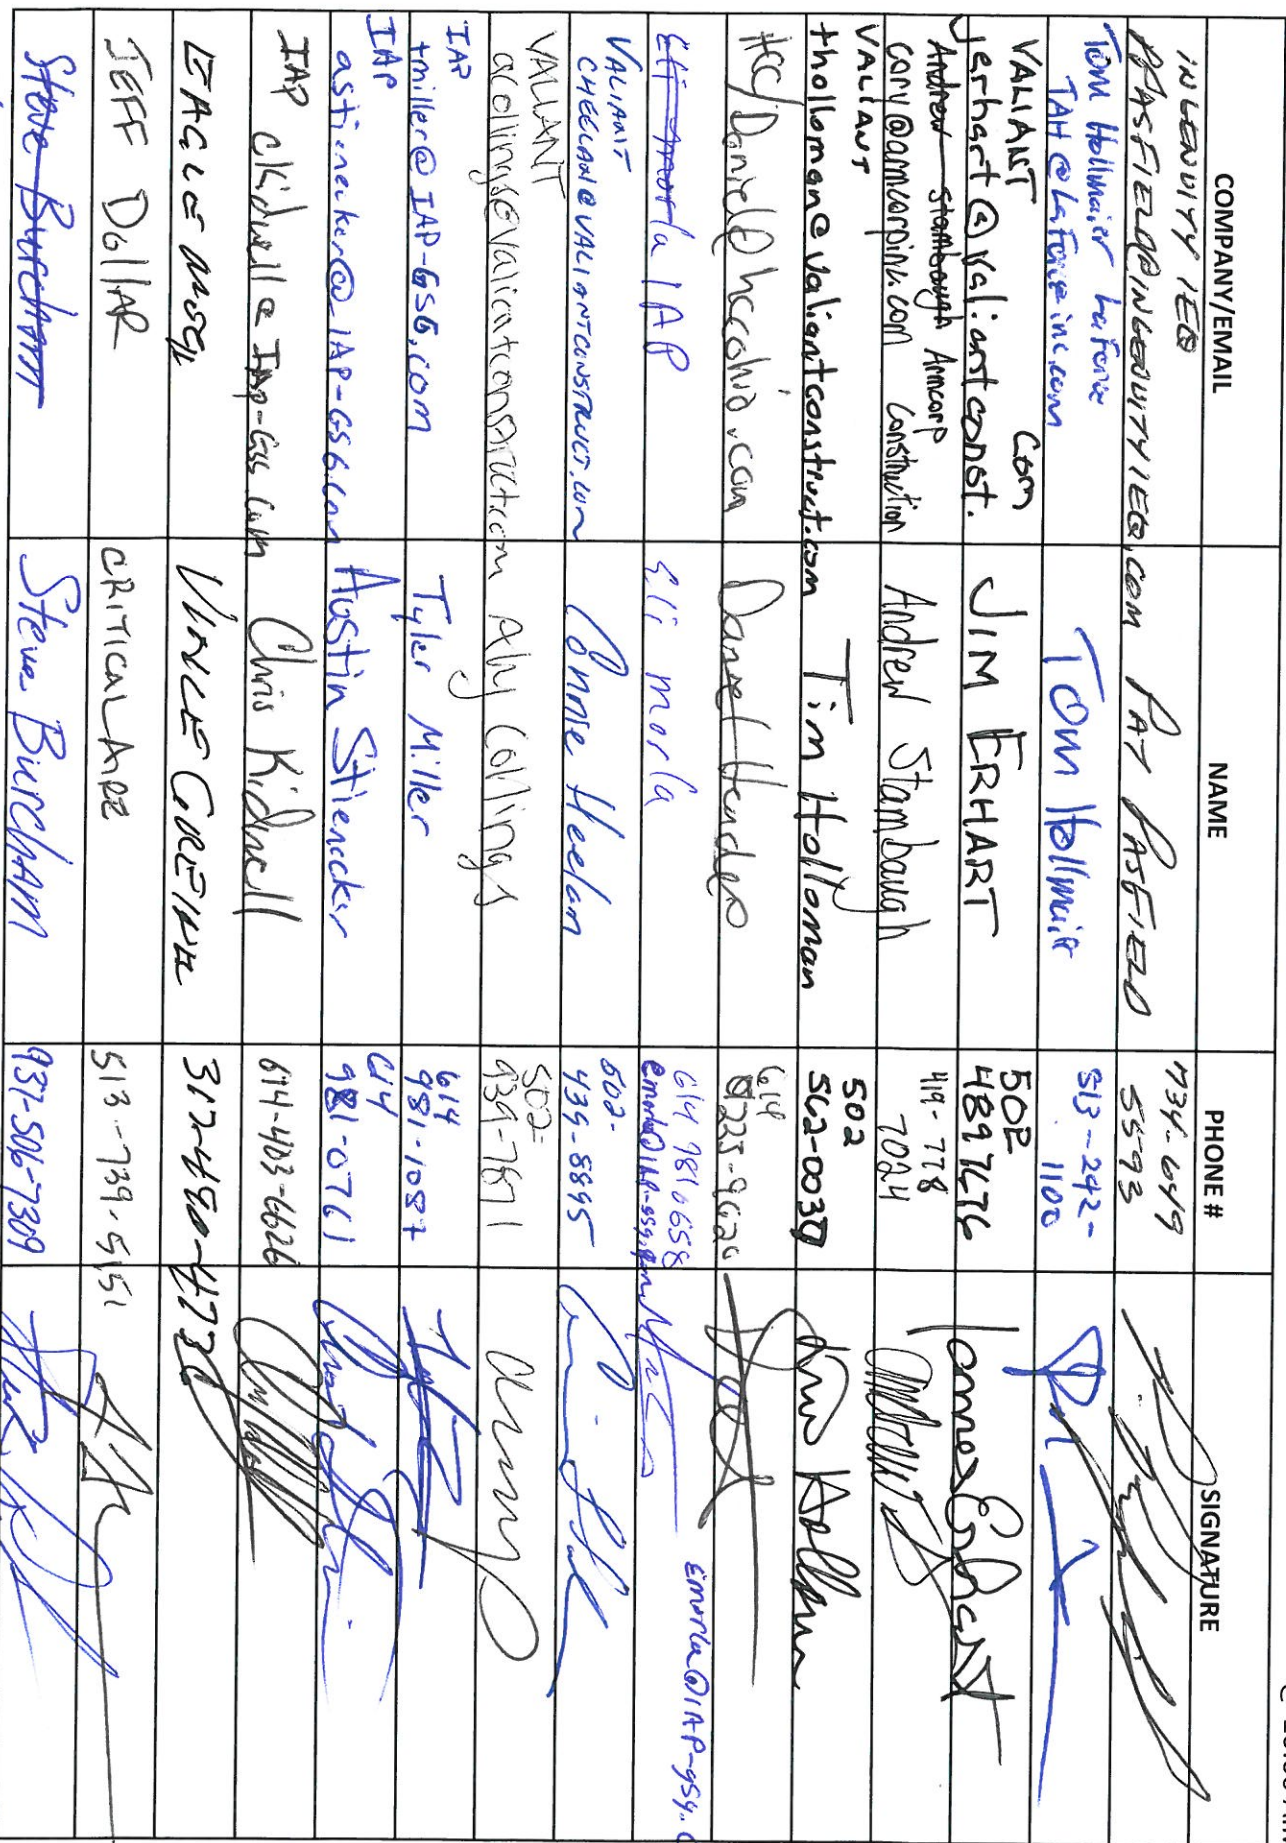 COMPANY/EMAIL NAME PHONE # SIGNATURE
INGENUITY IEQ
PPASFIELD@INGENUITYIEQ.COM PAT PASFIELD 734-649 5593
Tom Hollmaier LaForce
TAH@LaForceinc.com Tom Hollmaier 513-242-1100
VALIANT
jerhart@valiantconst.com JIM ERHART 502 489 7676 James Erhart
Andrew Stambaugh Armcorp
cony@armcorpinc.com Construction Andrew Stambaugh 419-778 7024
VALIANT
tholloman@valiantconstruct.com Tim Holloman 502 562-0030
HCC/Daniel@hccohio.com Daniel 614 225-9620
Eli morla IAP Eli morla 614 981 0658
emorla@IAP-gsg.com emorla@IAP-gsg.c
VALIANT
CHEELAN@VALIANTCONSTRUCT.com Connie Heelan 502-439-8895
VALIANT
acollings@valiantconstruct.com Aly Collings 502-939-7871
IAP
tmiller@IAP-GSG.com Tyler Miller 614 981-1087
IAP
astienecker@IAP-GSG.com Austin Stienecker 614 981-0761
IAP ckidwell@IAP-GSG.com Chris Kidwell 614-403-6626
EAGLE VINCE 317-480-4736
JEFF DOLLAR CRITICAL AIRE 513-739-5151
Steve Burcham Steve BurchAM 937-506-7309